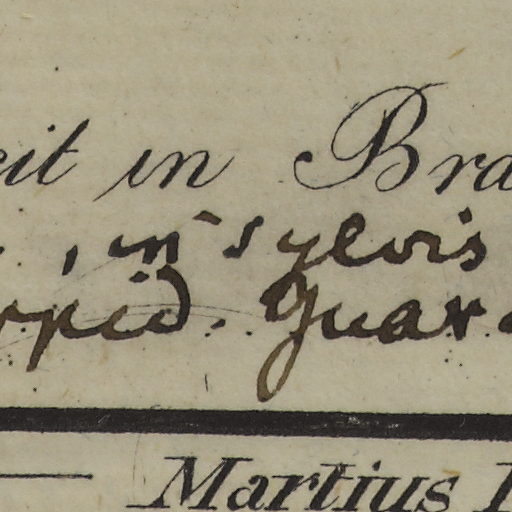 eit in Bra
, in sylvis
ppid. Guara
Martius I